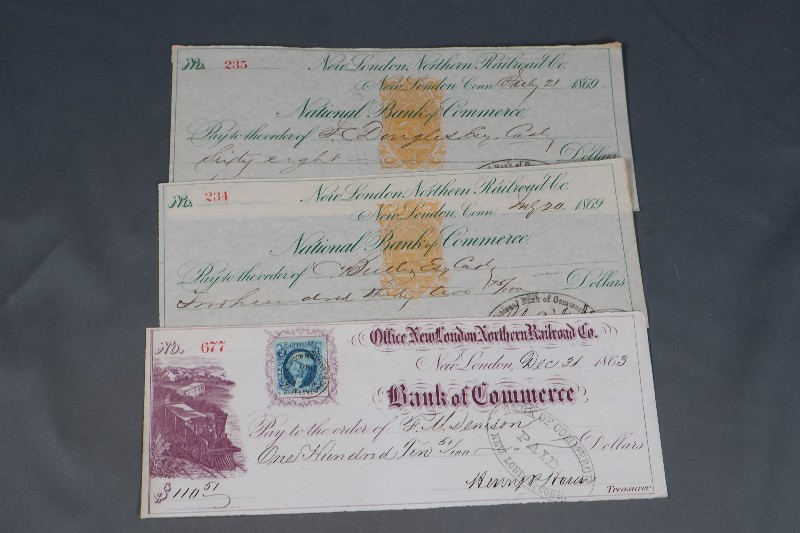 No. 235 New London Northern Railroad Co.
New London, Conn. July 21 1869
National Bank of Commerce
Pay to the order of F. C. Douglas, Esq. Cash
Sixty eight Dollars
No. 234 New London Northern Railroad Co.
New London, Conn. July 20 1869
National Bank of Commerce
Pay to the order of Esq Cash
Two hundred thirty two 75/100 Dollars
National Bank of Commerce
No. 677 Office New London Northern Railroad Co.
New London, Dec 31 1863
Bank of Commerce
Pay to the order of F. M. Denison
One Hundred Ten 51/100 Dollars
BANK OF COMMERCE PAID NEW LONDON, CONN.
$ 110 51
Treasurer